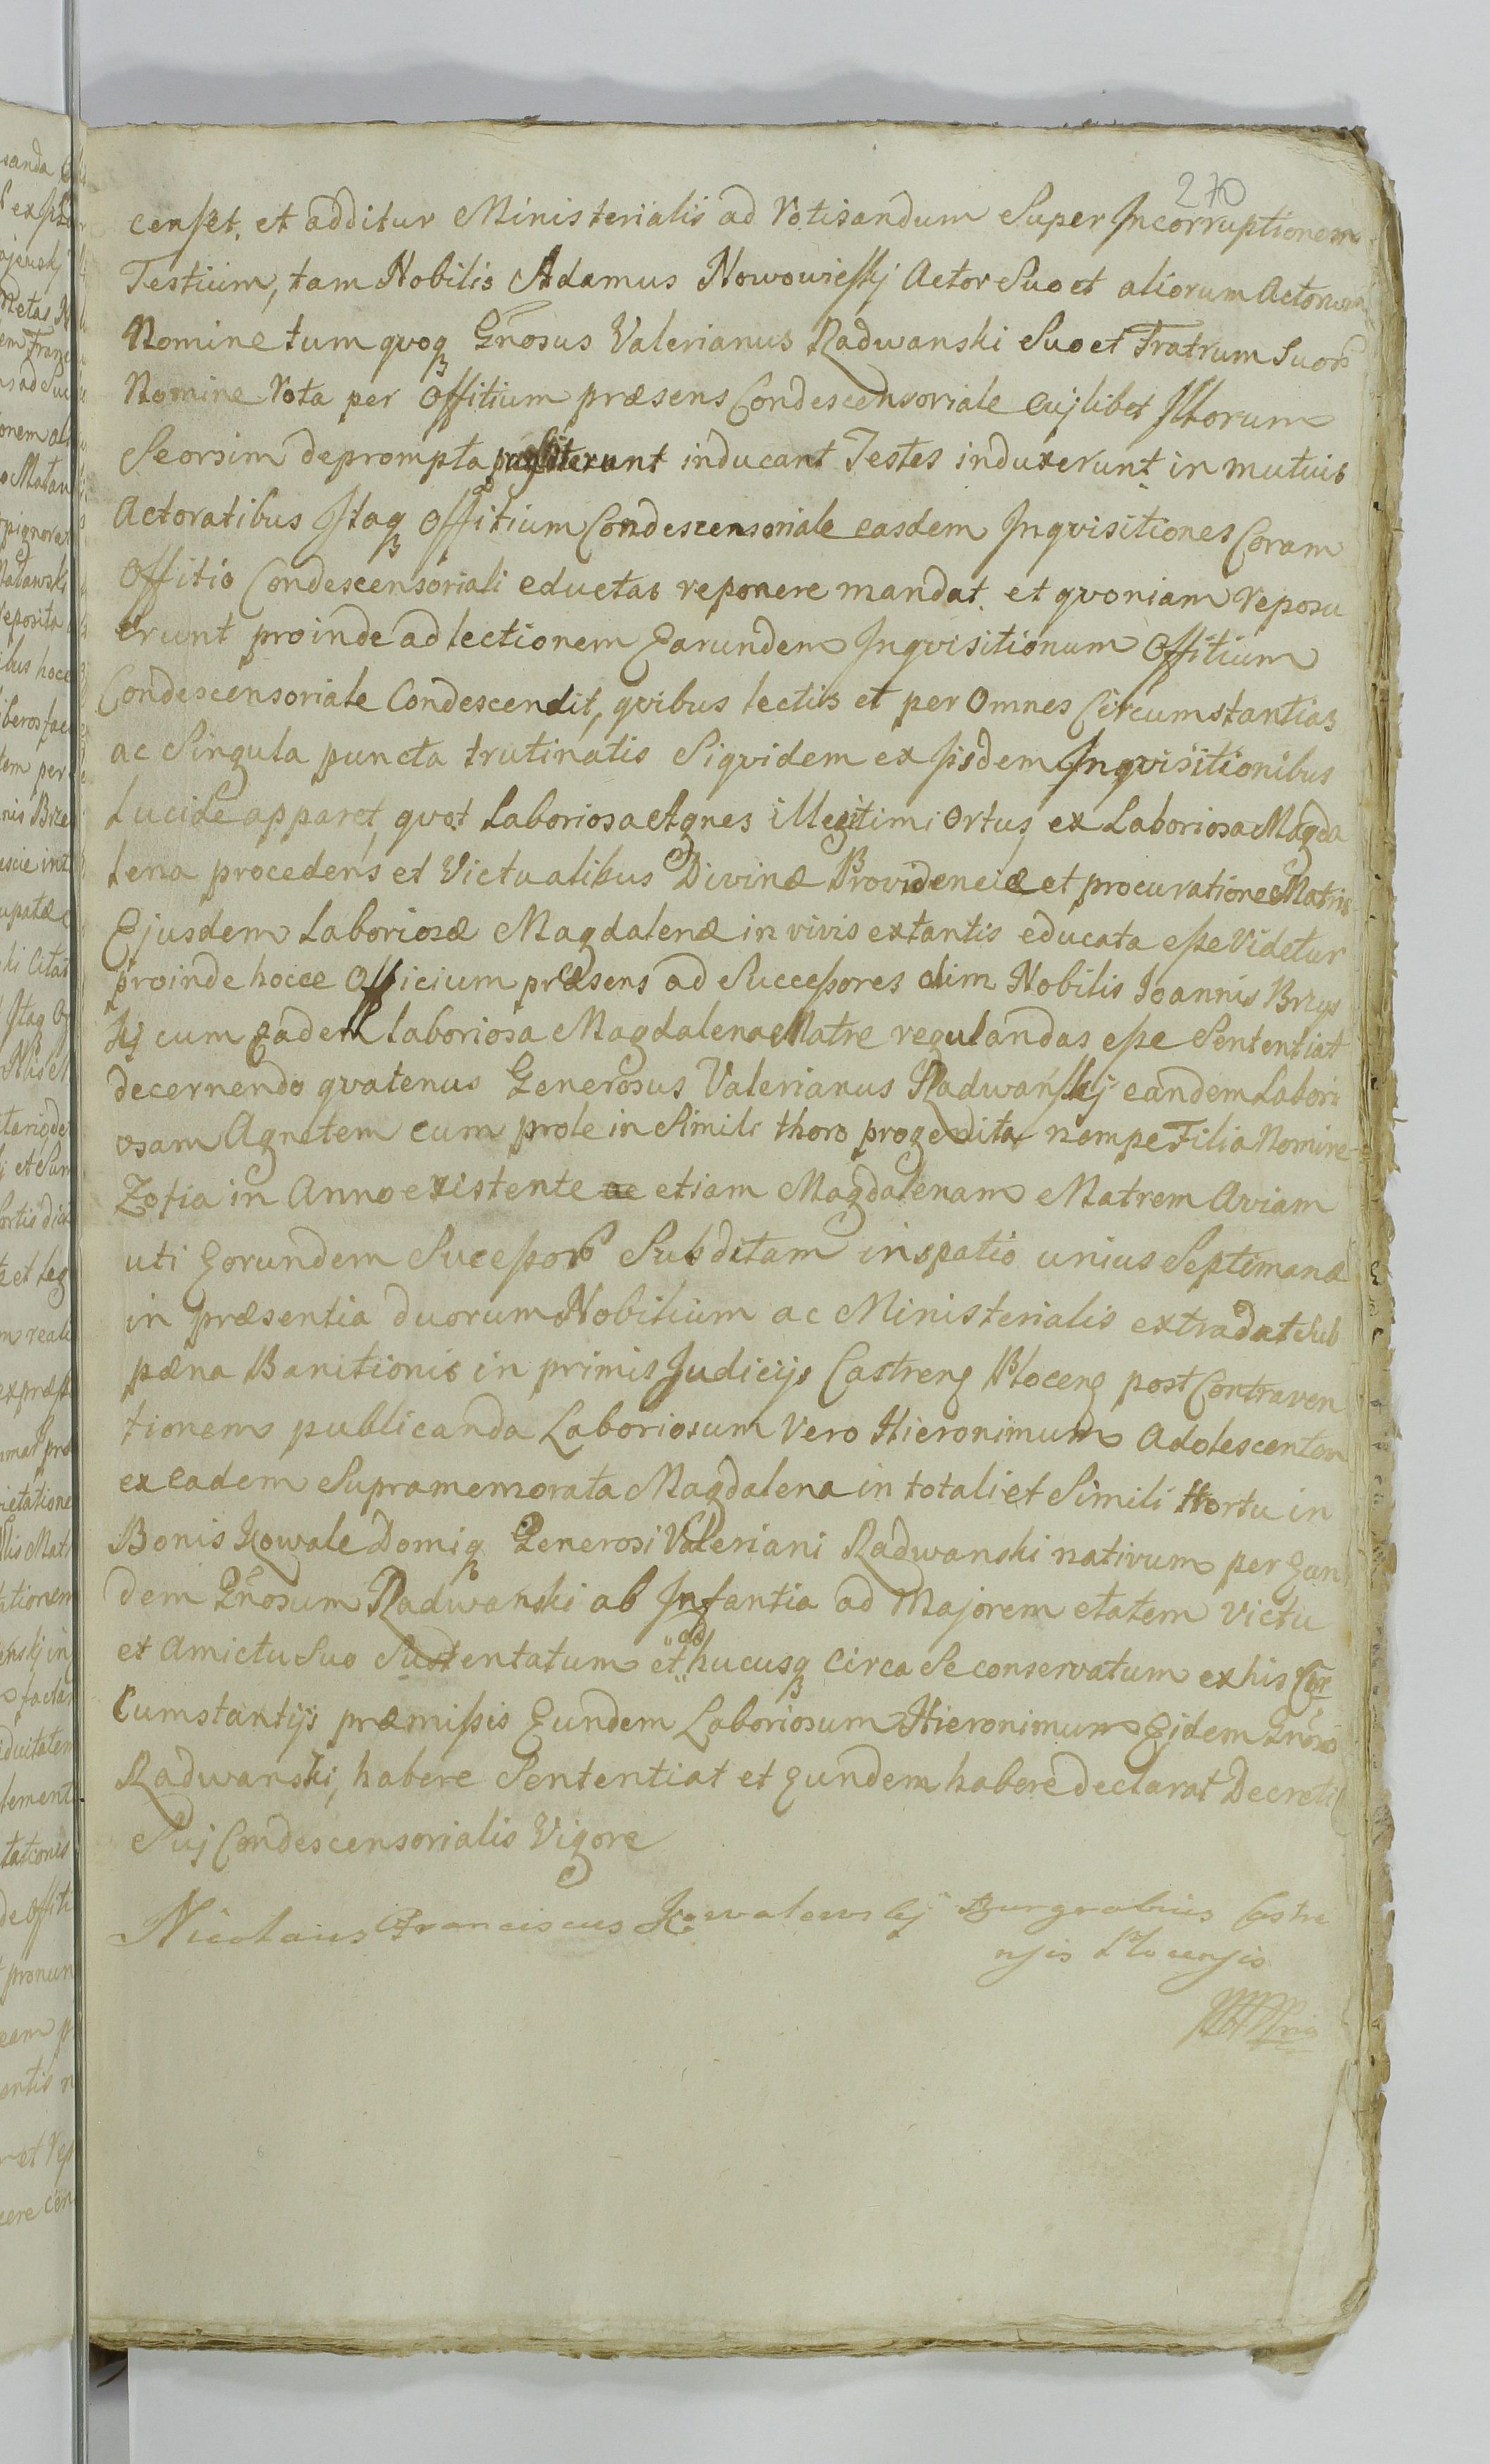 270
censet, et additur Ministerialis ad rotisandum Super Incorruptionem
Testium, tam Nobilis Adamus Nowowieskj Actor Suo et aliorum Actorum
Nomine tum quoq Gnosus Valerianus Radwanski Suo et Fratrum Suor
Nomine Rota per Offitium præsens Condescensoriale cujlibet Illorum
Seorsim deprompta inducant Testes induxerunt in mutuis
Actoratibus Itaq Offitium Condescensoriale easdem Inqvisitiones Coram
Offitio Condescensoriali eductas reponere mandat et qvoniam reposu
erunt proinde ad lectionem Earundem Inqvisitionum Offitium
Condescensoriale Condescendit, qvibus lectis et per Omnes Circumstantias
ac Singula puncta trutinatis Siqvidem ex ijsdem Inqvisitionibus
Lucide apparet, qvot Laboriosa Agnes illegitimi Ortus, ex Laboriosa Magda
lena procedens et Victualibus Divinæ Providenciæ et procuratione Matris
Ejusdem Laboriosæ Magdalenæ in vivis extantis educata esse Videtur
proinde hocce Officium præsens ad Successores olim Nobilis Joannis Brzys
kj cum Eadem laboriosa Magdalena Matre regulandas esse Sententiat
decernendo qvatenus Generosus Valerianus Radwanskj eandem Labori
osam Agnetem cum prole in Simili thoro progenita nempe Filia Nomine
Zofia in Anno existente ac etiam Magdalenam Matrem Aviam
uti Eorundem Successor Subditam in spatio unius Septimanæ
in præsentia duorum Nobilium ac Ministerialis extradat Sub
pæna Banitionis in primis Judicijs Castreng Ploceng post Contraven
tionem publicanda Laboriosum Vero Hieronimum Adolescentem
ex eadem Supramemorata Magdalena in totali et Simili Hortu in
Bonis Kowale Domiq Generosi Valeriani Radwanski nativum per Eun
dem Gnosum Radwanski ab Infantia ad Majorem etatem Victu
et Amictu Suo Sustentatum et ad hucusq circa Se conservatum ex his Cir
cumstantijs præmissis Eundem Laboriosum Hieronimum Ejdem Gnoso
Radwanski, habere Sententiat et Eundem habere declarat Decreti
Suj Condescensorialis Vigore
Nicolaus Franciscus Kowalewskj Burgrabius Castre
nsis Plocensis